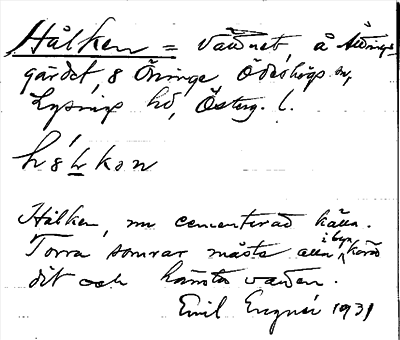 Hålken = vadnet, å Äldings-
gärdet, 8 Öninge Ödeshögs sn,
Lysings hd, Österg. l.
hålkon
Hålken, nu cementerad källa.
Torra somrar måste alla i byn köra
dit och hämta vatten.
Emil Engnér 1931